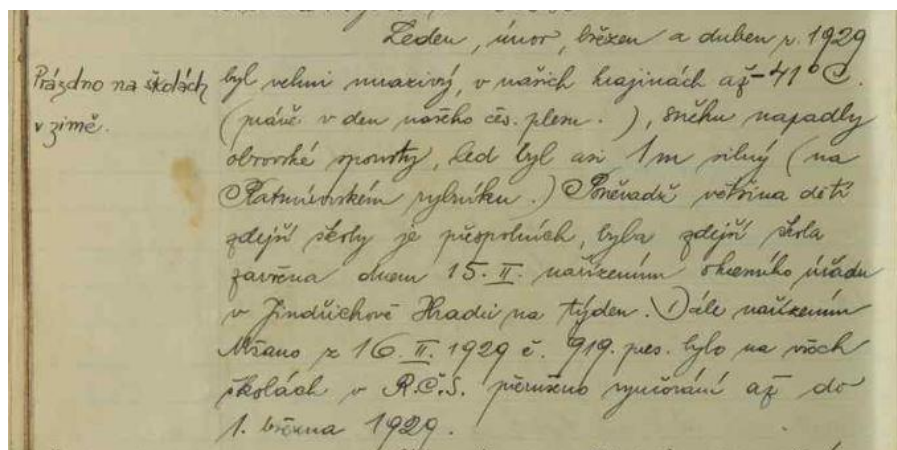 Leden, únor, březen a duben r. 1929
Prázdno na školách
v zimě.
byl velmi mrazivý, v našich krajinách až -41° C.
(právě v den našeho čes. plesu.), sněhu napadly
obrovské spousty, led byl asi 1 m silný (na
rybníku.) Poněvadž většina dětí
zdejší školy je přespolních, byla zdejší škola
zavřena dnem 15. II. nařízením okresního úřadu
v Jindřichově Hradci na týden. Dále nařízením
z 16. II. 1929 č. 919. pres. bylo na všech
školách v R.Č.S. přerušeno vyučování až do
1. března 1929.